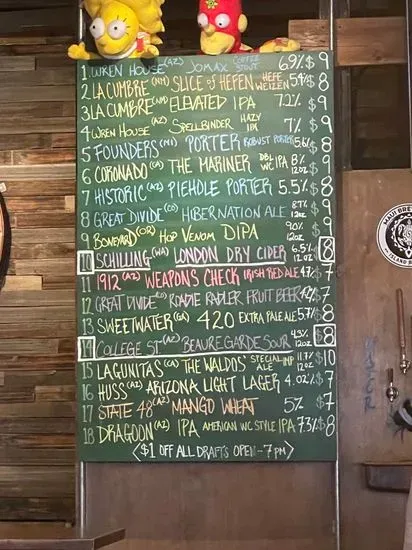 1 WREN HOUSE (AZ) JOMAX COFFEE STOUT 6.9% $9
2 LA CUMBRE (NM) SLICE OF HEFEN HEFE WEIZEN 5.4% $8
3 LA CUMBRE (NM) ELEVATED IPA 7.2% $9
4 WREN HOUSE (AZ) SPELLBINDER HAZY IPA 7% $9
5 FOUNDERS (MI) PORTER ROBUST PORTER 5.6% $8
6 CORONADO (CA) THE MARINER DBL WC IPA 8% 12oz $9
7 HISTORIC (AZ) PIEHOLE PORTER 5.5% $8
8 GREAT DIVIDE (CO) HIBERNATION ALE 8.7% 12oz $9
9 BONEYARD (OR) HOP VENOM DIPA 9.0% 12oz $9
10 SCHILLING (WA) LONDON DRY CIDER 6.5% 12oz $8
11 1912 (AZ) WEAPONS CHECK IRISH RED ALE $7
12 GREAT DIVIDE (CO) ROADIE RADLER FRUIT BEER $7
13 SWEETWATER (GA) 420 EXTRA PALE ALE 5.7% $8
14 COLLEGE ST (AZ) BEAUREGARDE SOUR 4.3% 12oz $8
15 LAGUNITAS (CA) THE WALDOS' SPECIAL ALE IMP 11.7% 12oz $10
16 HUSS (AZ) ARIZONA LIGHT LAGER 4.02% $7
17 STATE 48 (AZ) MANGO WHEAT 5% $7
18 DRAGOON (AZ) IPA AMERICAN WC STYLE IPA 7.3% $8
<$1 OFF ALL DRAFTS OPEN-7PM>
MAUI BREW
ISLAND